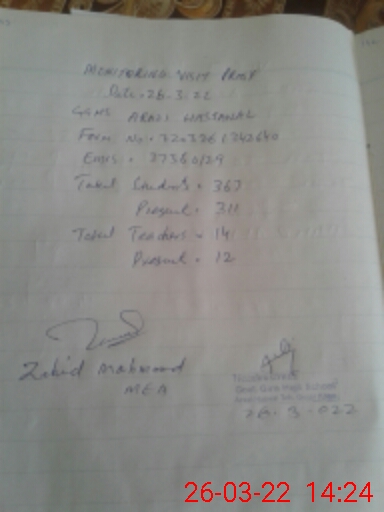 MONITORING VISIT PROF
Date = 26.3.22
GGHS ARAZI HASSANAL
Form No =
EMIS = 37360129
Total Students = 367
Present = 311
Total Teachers = 14
Present = 12
Zahid Mahmood
MEA
Govt. Girls High School
26.3-022
26-03-22 14:24